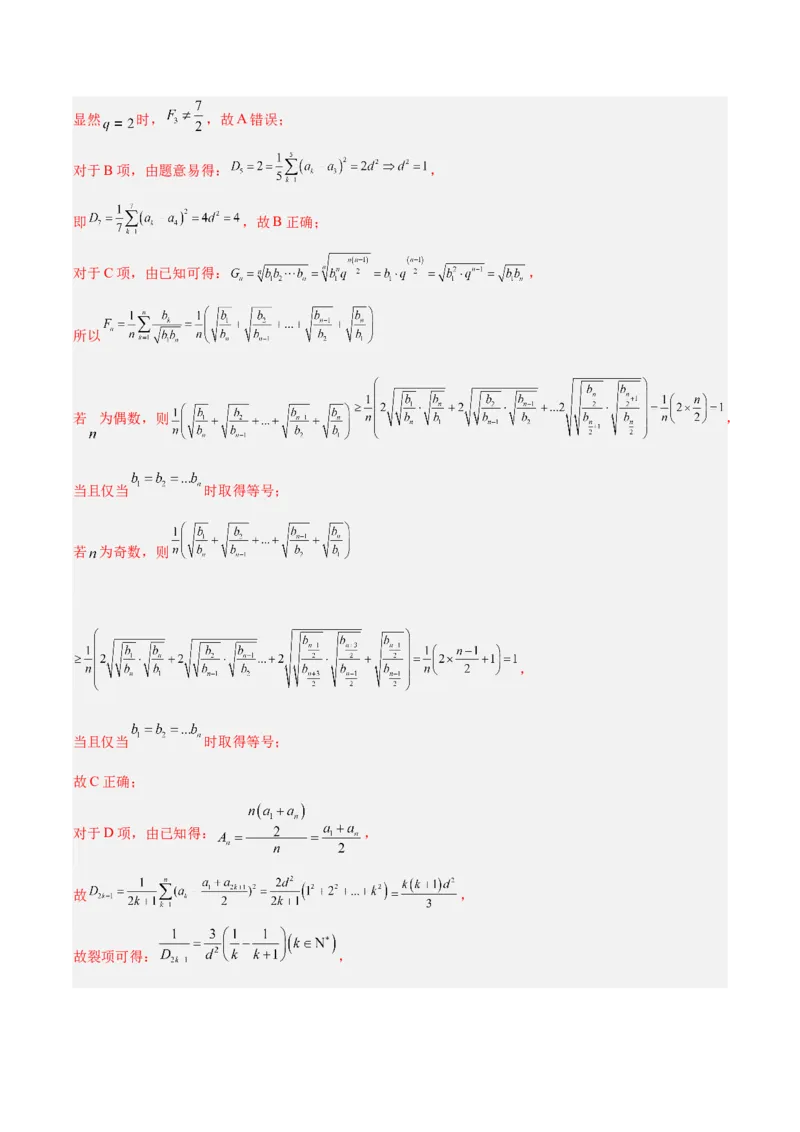 显然 q = 2 时， F₃ ≠ 7/2 ，故 A 错误；
对于 B 项，由题意易得： D₅ = 2 = \frac{1}{5}\sum_{k=1}^{5}(a_k - a_3)^2 = 2d^2 ⇒ d^2 = 1 ，
即 D_7 = \frac{1}{7}\sum_{k=1}^{7}(a_k - a_4)^2 = 4d^2 = 4 ，故 B 正确；
对于 C 项，由已知可得： G_n = \sqrt[n]{b_1 b_2 ⋯ b_n} = \sqrt[n]{b_1^n q^{\frac{n(n-1)}{2}}} = b_1 · q^{\frac{(n-1)}{2}} = \sqrt{b_1^2 · q^{n-1}} = \sqrt{b_1 b_n} ，
所以 F_n = \frac{1}{n}\sum_{k=1}^{n}\frac{b_k}{\sqrt{b_1 b_n}} = \frac{1}{n}\left(\sqrt{\frac{b_1}{b_n}} + \sqrt{\frac{b_2}{b_{n-1}}} + ... + \sqrt{\frac{b_{n-1}}{b_2}} + \sqrt{\frac{b_n}{b_1}}\right)
若 n 为偶数，则 \frac{1}{n}\left(\sqrt{\frac{b_1}{b_n}} + \sqrt{\frac{b_2}{b_{n-1}}} + ... + \sqrt{\frac{b_{n-1}}{b_2}} + \sqrt{\frac{b_n}{b_1}}\right) ≥ \frac{1}{n}\left(2\sqrt{\sqrt{\frac{b_1}{b_n}} · \sqrt{\frac{b_n}{b_1}}} + 2\sqrt{\sqrt{\frac{b_2}{b_{n-1}}} · \sqrt{\frac{b_{n-1}}{b_2}}} + ...2\sqrt{\sqrt{\frac{b_{\frac{n}{2}}}{b_{\frac{n}{2}+1}}} · \sqrt{\frac{b_{\frac{n}{2}+1}}{b_{\frac{n}{2}}}}}\right) = \frac{1}{n}\left(2 × \frac{n}{2}\right) = 1 ，
当且仅当 b_1 = b_2 = ...b_n 时取得等号；
若 n 为奇数，则 \frac{1}{n}\left(\sqrt{\frac{b_1}{b_n}} + \sqrt{\frac{b_2}{b_{n-1}}} + ... + \sqrt{\frac{b_{n-1}}{b_2}} + \sqrt{\frac{b_n}{b_1}}\right)
≥ \frac{1}{n}\left(2\sqrt{\sqrt{\frac{b_1}{b_n}} · \sqrt{\frac{b_n}{b_1}}} + 2\sqrt{\sqrt{\frac{b_2}{b_{n-1}}} · \sqrt{\frac{b_{n-1}}{b_2}}} ... + 2\sqrt{\sqrt{\frac{b_{\frac{n-1}{2}}}{b_{\frac{n+3}{2}}}} · \sqrt{\frac{b_{\frac{n+3}{2}}}{b_{\frac{n-1}{2}}}} + \sqrt{\frac{b_{\frac{n+1}{2}}}{b_{\frac{n+1}{2}}}}}\right) = \frac{1}{n}\left(2 × \frac{n-1}{2} + 1\right) = 1 ，
当且仅当 b_1 = b_2 = ...b_n 时取得等号；
故 C 正确；
对于 D 项，由已知得： A_n = \frac{\frac{n(a_1 + a_n)}{2}}{n} = \frac{a_1 + a_n}{2} ，
故 D_{2k+1} = \frac{1}{2k+1}\sum_{k=1}^{n}(a_k - \frac{a_1 + a_{2k+1}}{2})^2 = \frac{2d^2}{2k+1}(1^2 + 2^2 + ... + k^2) = \frac{k(k+1)d^2}{3} ，
故裂项可得： \frac{1}{D_{2k+1}} = \frac{3}{d^2}\left(\frac{1}{k} - \frac{1}{k+1}\right)(k ∈ N^*) ，